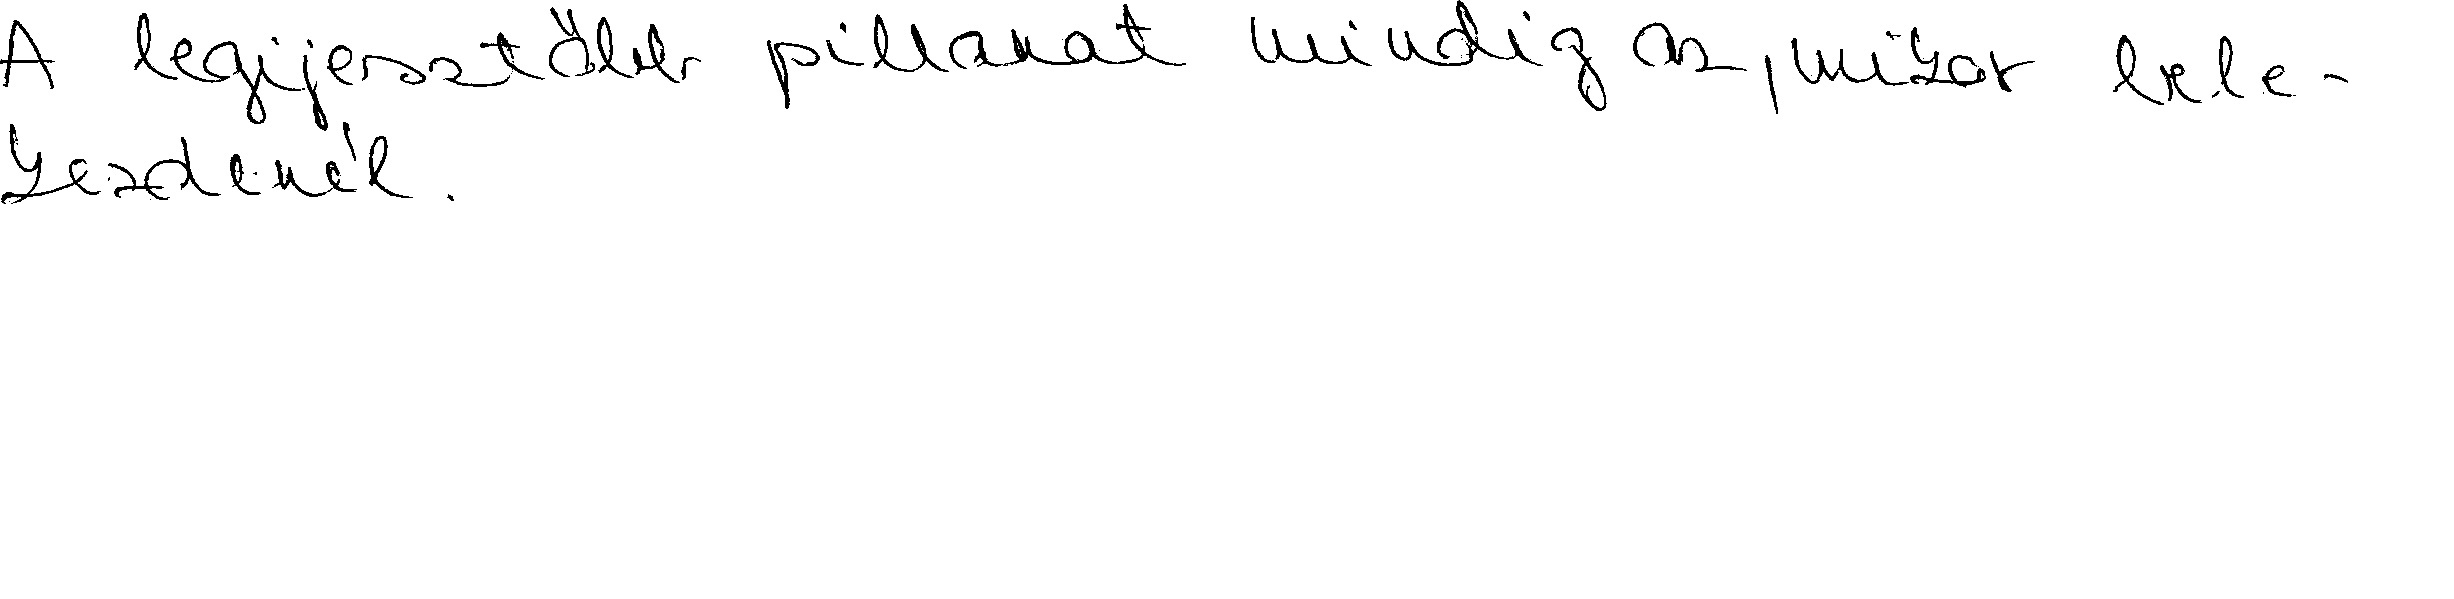 A legijesztőbb pillanat mindig az, mikor bele-
kezdenél.